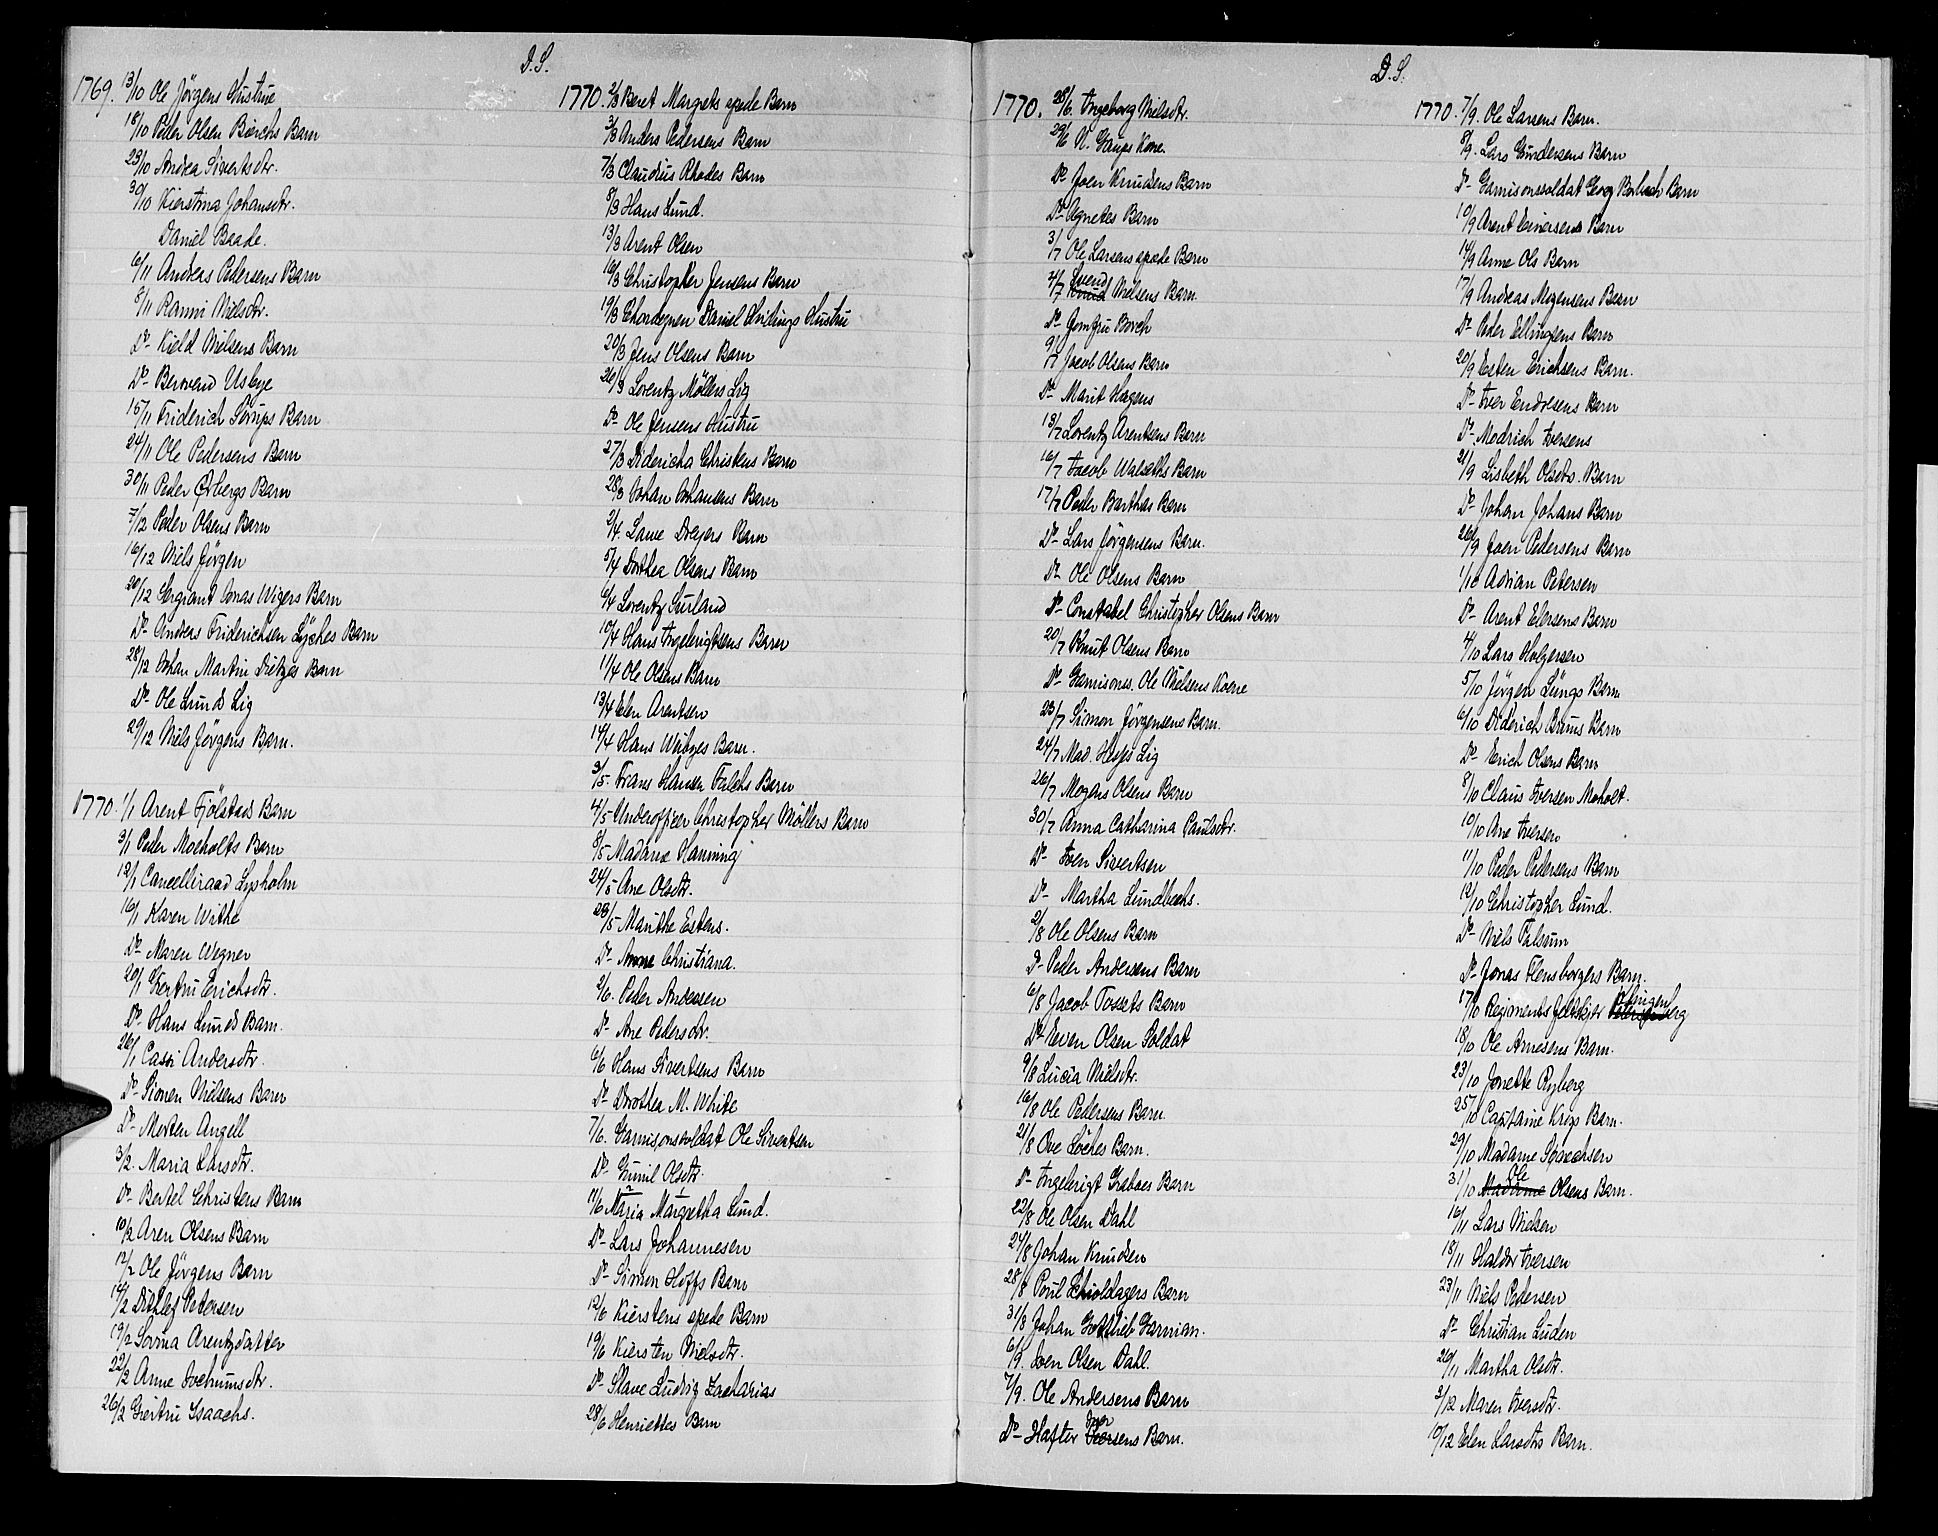 D. S.
1769. 13/10 Ole Jörgens Hustrue
18/10 Peder Olsen Bierchs Barn
23/10 Andrea Sivertsdtr.
30/10 Kierstina Johansdtr.
Daniel Baade.
6/11 Andreas Pedersens Barn
8/11 Ranni Nielsdtr.
Do- Kield Nielsens Barn
Do- Bernand Usbye
15/11 Friderich Sörups Barn
24/11 Ole Pedersens Barn
30/11 Peder Örbergs Barn
7/12 Peder Olsens Barn
16/12 Niels Jörgen
20/12 Sergiant Jonas Wigers Barn
Do- Andreas Friderichsen Lÿches Barn
28/12 Johan Martin Dietzes Barn
Do- Ole Lunds Lig
29/12 Niels Jörgens Barn.
1770. 1/1 Arent Fiölstads Barn
3/1 Peder Moeholts Barn
12/1 Cancelliraad Lysholm
16/1 Karen Withe
Do- Maren Wegner
20/1 Giertru Erichsdtr.
Do- Hans Lunds Barn.
26/1 Cassi Andersdtr.
Do- Simen Nielsens Barn
Do- Morten Angell
3/2. Maria Larsdtr.
Do- Bertel Christens Barn
10/2 Aren Olsens Barn
12/2 Ole Jörgens Barn
14/2 Dithlef Petersen
19/2 Sovina Arentzdatter
22/2 Anne Jochumsdtr.
26/2 Giertru Isaachs.
1770. 2/3 Beret Margrets spede Barn
3/3 Anders Pedersens Barn
7/3 Claudius Rhodes Barn
8/3 Hans Lund.
13/3 Arent Olsen
16/3 Christopher Jensens Barn
19/3 Chordegnen Daniel Hvidings Hustru
20/3 Jens Olsens Barn
26/3 Lorentz Möllers Lig
Do- Ole Jensens Hustru
27/3 Didericha Christens Barn
28/3 Johan Johansens Barn
2/4. Laue Dreyers Barn
5/4 Dorthea Olsens Barn
6/4 Lorentz Surland
10/4 Hans Ingebrigtsens Barn
11/4 Ole Olsens Barn
13/4 Elen Arentsen
14/4 Hans Weitzes Barn.
3/5. Frans Hansen Falchs Barn
4/5 Underofficer Christopher Möllers Barn
8/5 Madame Hanning
24/5 Ane Olsdtr.
28/5 Marithe Estens.
Do- Anne Christiana.
2/6. Peder Andersen
Do- Ane Pedersdtr.
6/6 Hans Sivertsens Barn
Do- Dorothea M. White
7/6. Garnisonsoldat Ole Sivertsen
Do- Gunil Olsdtr.
11/6 Maria Margretha Lund.
Do- Lars Johannesen
Do- Simon Hoffs Barn
12/6 Kierstens spede Barn
19/6 Kiersten Nielsdtr.
Do- Slave Ludvig Zacharias
28/6 Henriettes Barn
D. S.
1770. 28/6. Ingeborg Nielsdtr.
29/6 N. Gaups Kone.
Do- Joen Knudsens Barn
Do- Agnetes Barn
3/7 Ole Larsens spæde Barn
Svend
4/7 Knud Nielsens Barn.
Do- Jomfru Borch
9/7 Jacob Olsens Barn
Do- Marit Hagens
13/7 Lorentz Arentsens Barn
16/7 Jacob Walseths Barn
17/7 Peder Barthas Barn
Do- Lars Jörgensens Barn.
Do- Ole Olsens Barn
Do- Constabel Christopher Olsens Barn
20/7 Knut Olsens Barn
Do- Garnisons. Ole Nielsens Kone
23/7 Simon Jörgensens Barn.
24/7 Mad. Heyes Lig
26/7 Mogens Olsens Barn
30/7 Anna Catharina Paulsdtr.
Do- Iver Sivertsen
Do- Martha Lundbechs.
2/8 Ole Olsens Barn
Do- Peder Andersens Barn
6/8 Jacob Tossets Barn
Do- Even Olsen Soldat
9/8 Lucia Nielsdtr.
16/8 Ole Pedersens Barn.
21/8 Ove Löches Barn.
Do- Ingebrigt Graboes Barn
22/8 Ole Olsen Dahl
24/8 Johan Knudsen
28/8 Poul Schioldagers Barn
31/8 Johan Gottlieb Garmian.
6/9. Iver Olsen Dahl.
7/9. Ole Andersens Barn
Iver
Do- Hafter Peersens Barn.
1770. 7/9. Ole Larsens Barn.
8/9. Lars Gundersens Barn
Do- Garnisonssoldat Georg Borbach Barn
10/9 Arent Einersens Barn
14/9 Anne Ols Barn
17/9 Andreas Mogensens Barn
Do- Peder Ellingsens Barn
20/9 Esten Erichsens Barn.
Do- Iver Endresens Barn
Do- Modrich Iversens
21/9 Lisbeth Olsdtr. Barn
Do- Johan Johans Barn
26/9 Joen Pedersens Barn
1/10 Adrian Petersen
Do- Arent Elersens Barn
4/10 Lars Holgersen
5/10 Jörgen Lüngs Barn
6/10 Diderich Bruns Barn
Do- Erich Olsens Barn
8/10 Claus Iversen Moholt.
10/10 Ane Iversen
11/10 Peder Pedersens Barn
12/10 Christopher Lund.
Do- Niels Palsum
Do- Jonas Flensborgers Barn.
17/10 Regimentsfeltskjær
18/10 Ole Arnesens Barn.
23/10 Jonette Ryberg
25/10 Captaine Krogs Barn.
29/10 Madame Sörechsen
Ole
31/10 Madame Olsens Barn.
16/11 Lars Nielsen
18/11 Haldor Iversen
23/11 Niels Pedersen
Do- Christian Luden
26/11 Martha Olsdtr.
3/12 Maren Iversdtr.
10/12 Elen Larsdtrs Barn.